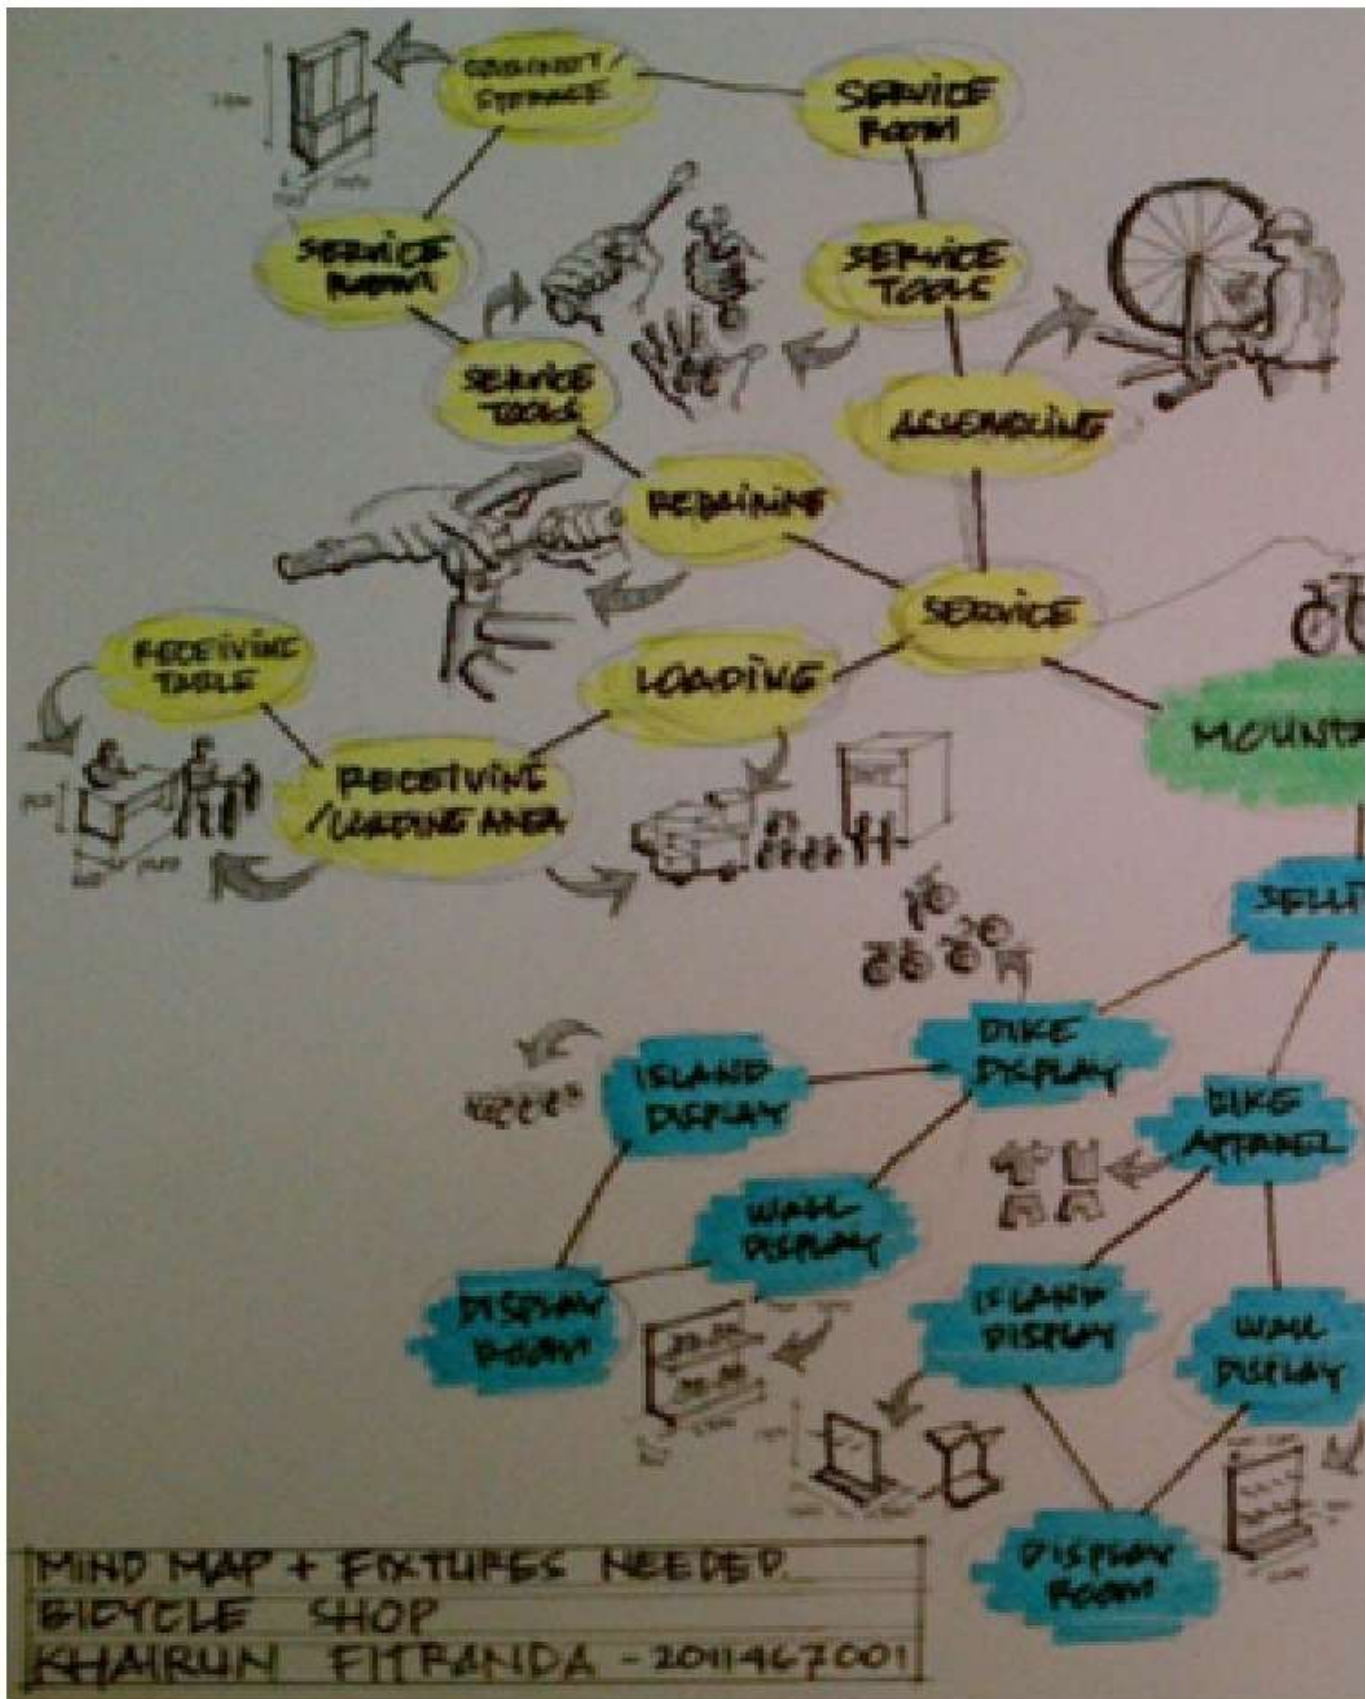 CABINET /
STORAGE
SERVICE
ROOM
SERVICE
ROOM
SERVICE
TOOLS
SERVICE
TOOLS
ASSEMBLING
REPAIRING
SERVICE
RECEIVING
TABLE
LOADING
RECEIVING
/LOADING AREA
MOUNTA
SELLI
BIKE
DISPLAY
ISLAND
DISPLAY
BIKE
APPAREL
WALL
DISPLAY
DISPLAY
ROOM
ISLAND
DISPLAY
WALL
DISPLAY
DISPLAY
ROOM
MIND MAP + FIXTURES NEEDED.
BICYCLE SHOP
KHAIRUN FITRANDA - 2011467001